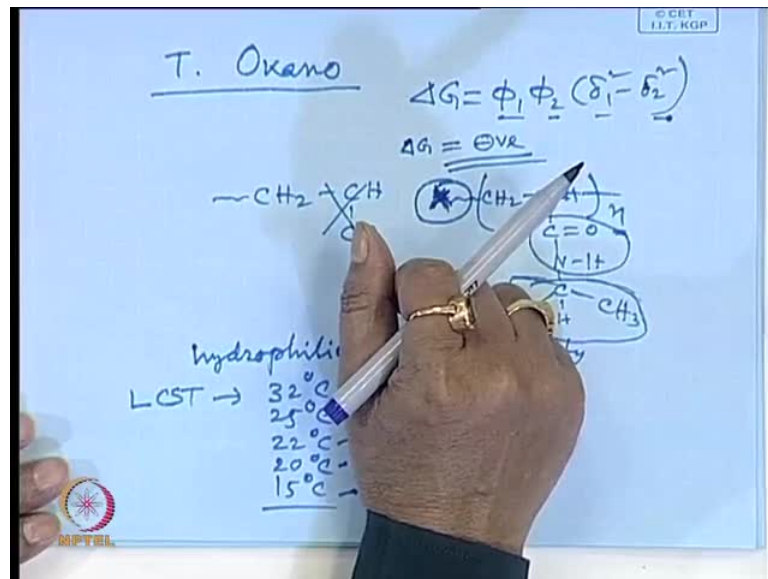 © CET
I.I.T. KGP
T. Okano
ΔG = ϕ₁ ϕ₂ (δ₁² - δ₂²)
ΔG = ⊖ve
~CH₂ - CH
C
(CH₂ - H)n
C = O
N-H
C - CH₃
H
hydrophili
LCST → 32°C
25°C
22°C -
20°C -
15°C →
NPTEL